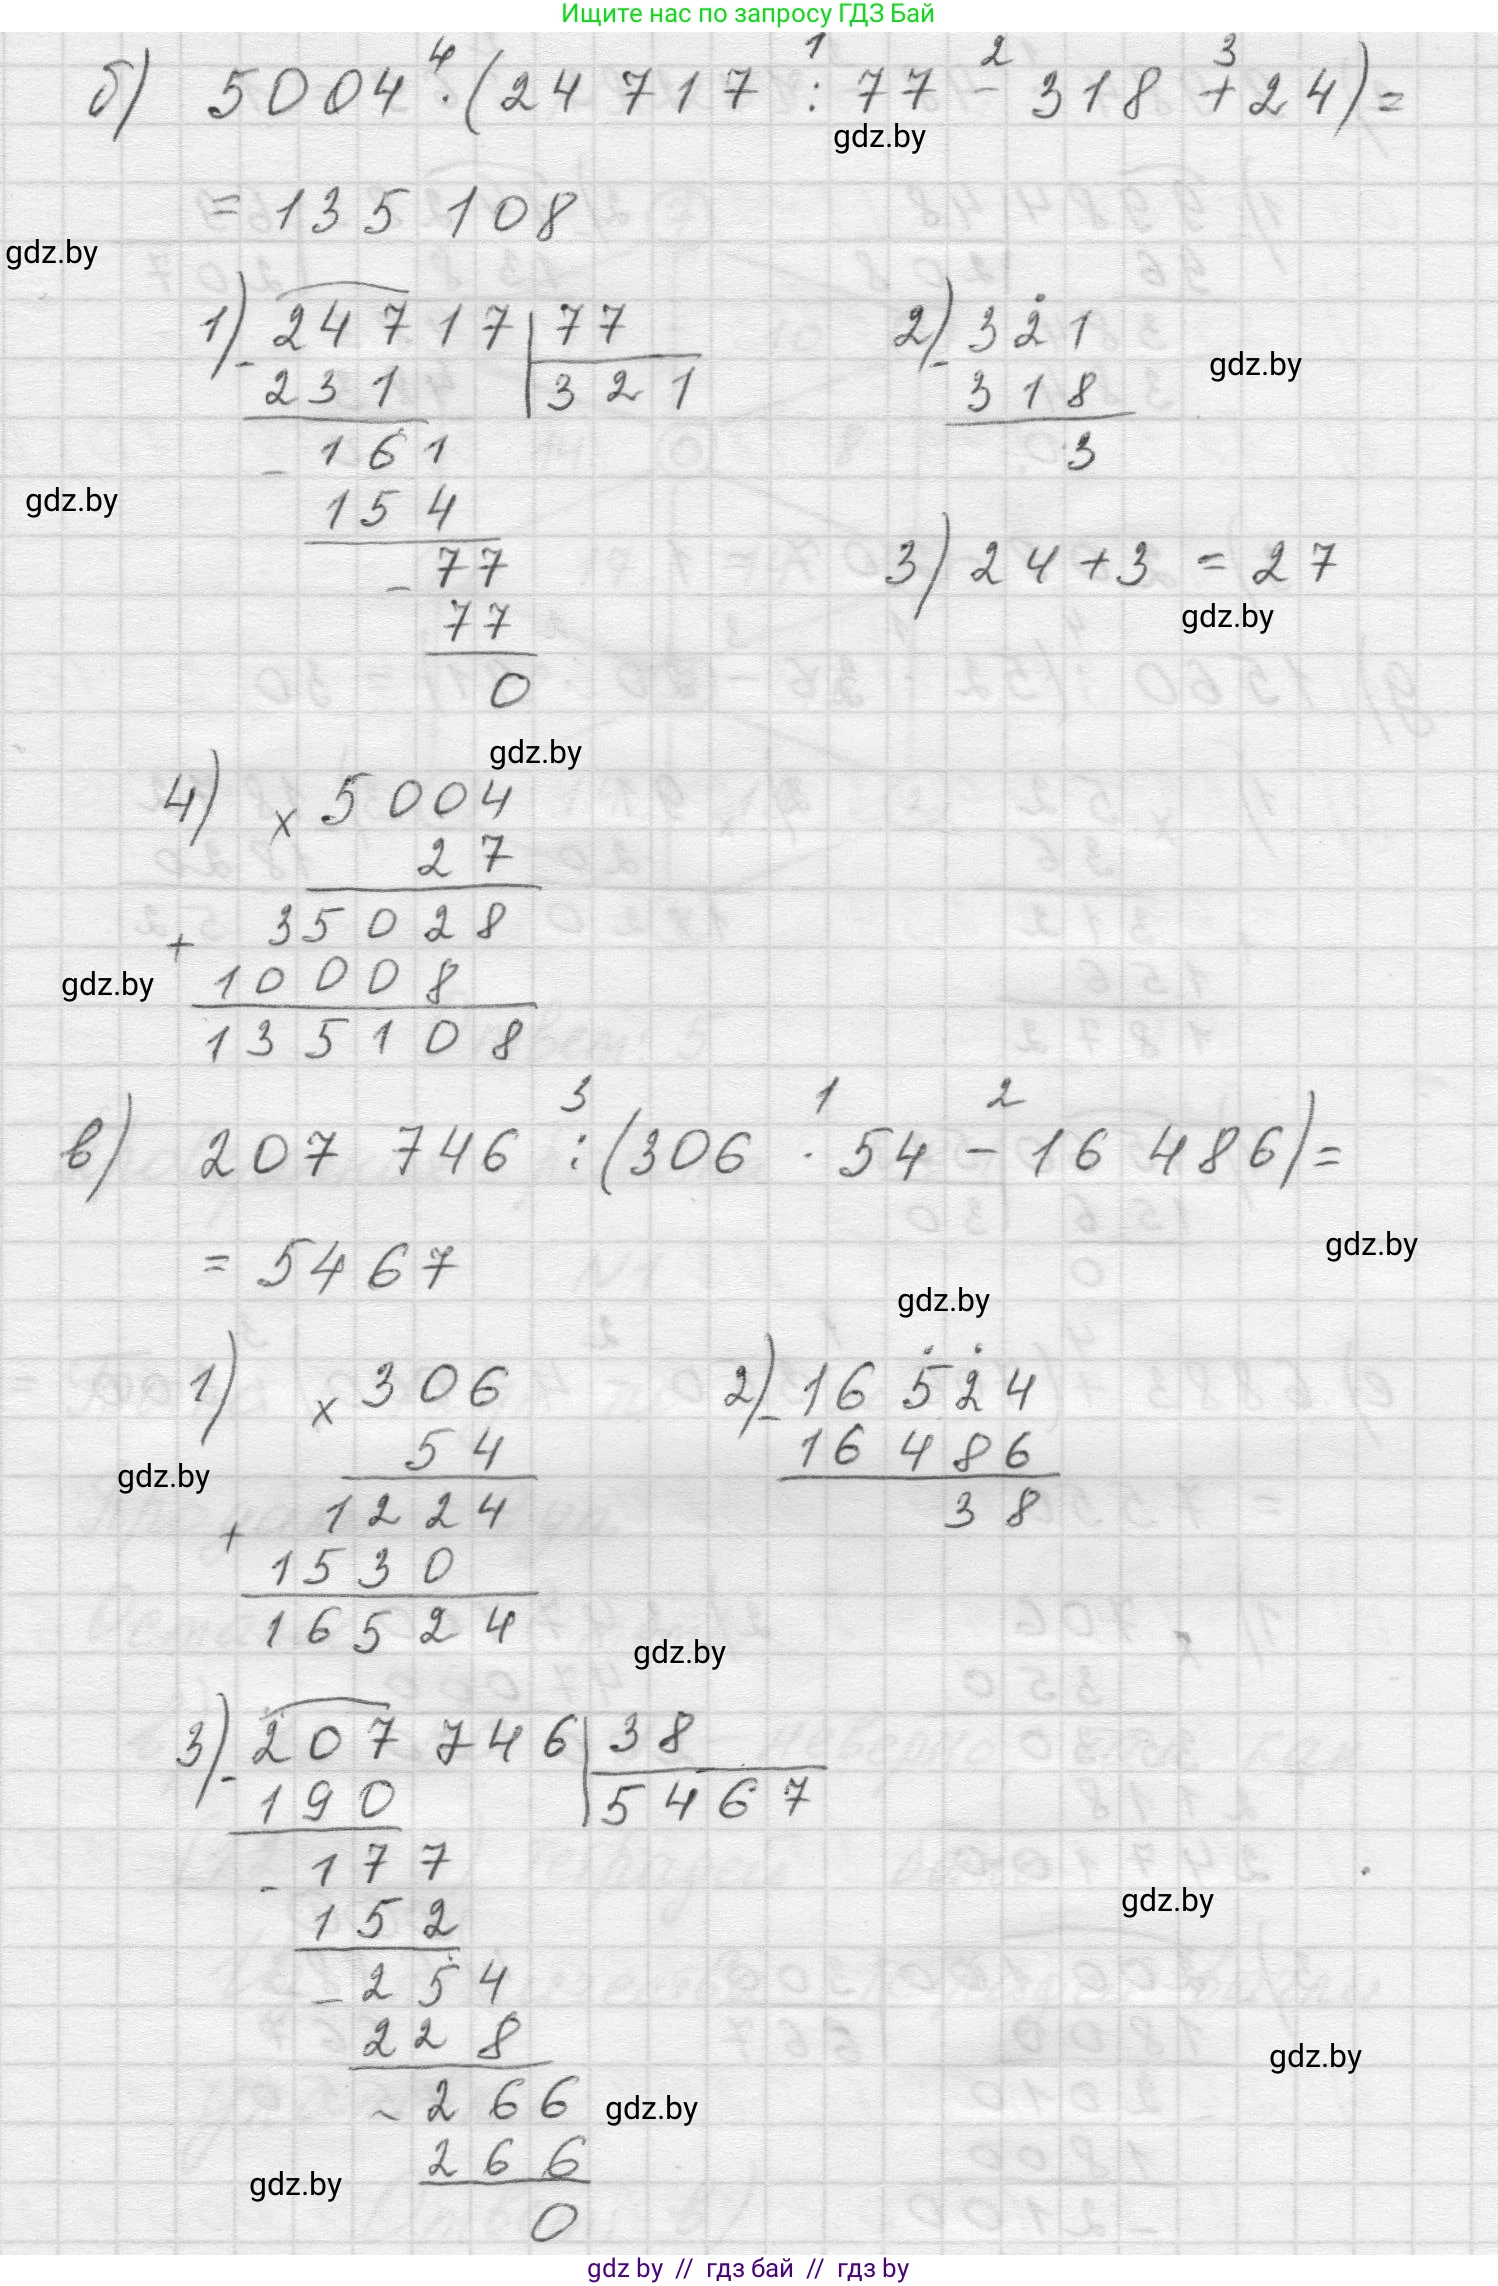 Ищите нас по запросу ГДЗ Бай
б) 5004 ⁴· (24 717 ¹: 77 ²- 318 ³+ 24) =
gdz.by
= 135 108
gdz.by
1) - 24717 | 77
231 | 321
- 161
154
- 77
77
0
2) - 321
318
3
gdz.by
gdz.by
3) 24 + 3 = 27
gdz.by
gdz.by
4) x 5004
27
+ 35028
10008
135108
gdz.by
в) 207 746 ³: (306 ¹· 54 ²- 16 486) =
= 5467
gdz.by
gdz.by
1) x 306
54
+ 1224
1530
16524
gdz.by
2) - 16 524
16 486
38
gdz.by
3) - 207 746 | 38
190 | 5467
- 177
152
- 254
228
- 266
266
0
gdz.by
gdz.by
gdz.by
gdz.by
gdz by // гдз бай // гдз by